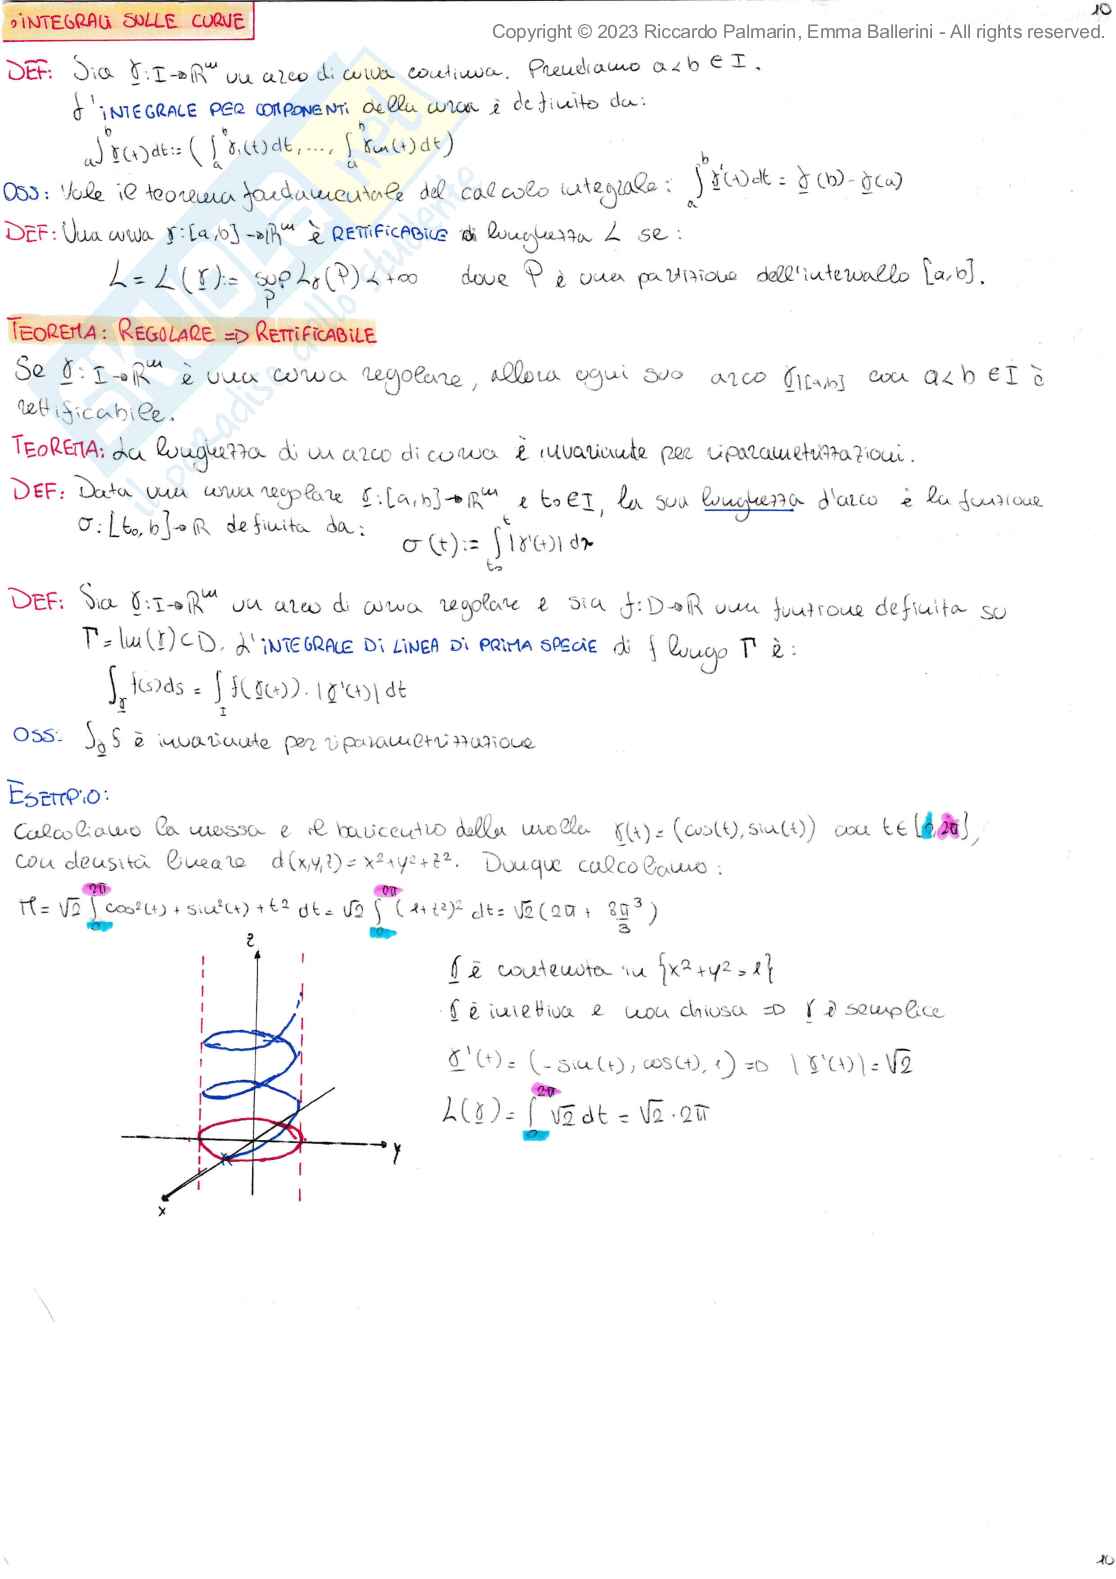 10
Copyright © 2023 Riccardo Palmarin, Emma Ballerini - All rights reserved.
• INTEGRALI SULLE CURVE
DEF: Sia γ: I→ℝᵐ un arco di curva continua. Prendiamo a<b ∈ I.
L'INTEGRALE PER COMPONENTI della curva è definito da:
ₐ∫ᵇ γ(t)dt := (∫ₐᵇ γ₁(t)dt, ..., ∫ₐᵇ γm(t)dt)
OSS: Vale il teorema fondamentale del calcolo integrale: ∫ₐᵇ γ'(t)dt = γ(b)-γ(a)
DEF: Una curva γ: [a,b]→ℝᵐ è RETTIFICABILE di lunghezza L se:
L = L(γ) := sup_P Lγ(P) < +∞ dove P è una partizione dell'intervallo [a,b].
TEOREMA: REGOLARE ⇒ RETTIFICABILE
Se γ: I→ℝᵐ è una curva regolare, allora ogni suo arco γ|[a,b] con a<b ∈ I è
rettificabile.
TEOREMA: La lunghezza di un arco di curva è invariante per riparametrizzazioni.
DEF: Data una curva regolare γ: [a,b]→ℝᵐ e t₀∈I, la sua lunghezza d'arco è la funzione
σ: [t₀,b]→ℝ definita da: σ(t) := ∫_{t₀}^{t} |γ'(t)| dr
DEF: Sia γ: I→ℝᵐ un arco di curva regolare e sia f: D→ℝ una funzione definita su
Γ = Im(γ) ⊂ D. L'INTEGRALE DI LINEA DI PRIMA SPECIE di f lungo Γ è:
∫_γ f(s)ds = ∫_I f(γ(t)) · |γ'(t)| dt
OSS: ∫_γ f è invariante per riparametrizzazione
ESEMPIO:
Calcoliamo la massa e il baricentro della molla γ(t) = (cos(t), sin(t)) con t∈[0,2π],
con densità lineare d(x,y,z) = x²+y²+z². Dunque calcoliamo:
M = √2 ∫₀^{2π} cos²(t) + sin²(t) + t² dt = √2 ∫₀^{2π} (1+t²)² dt = √2 (2π + 8π³/3)
z
γ è contenuta in {x²+y²=1}
γ è iniettiva e non chiusa ⇒ γ è semplice
γ'(t) = (-sin(t), cos(t), 1) ⇒ |γ'(t)| = √2
L(γ) = ∫₀^{2π} √2 dt = √2 · 2π
y
x
10